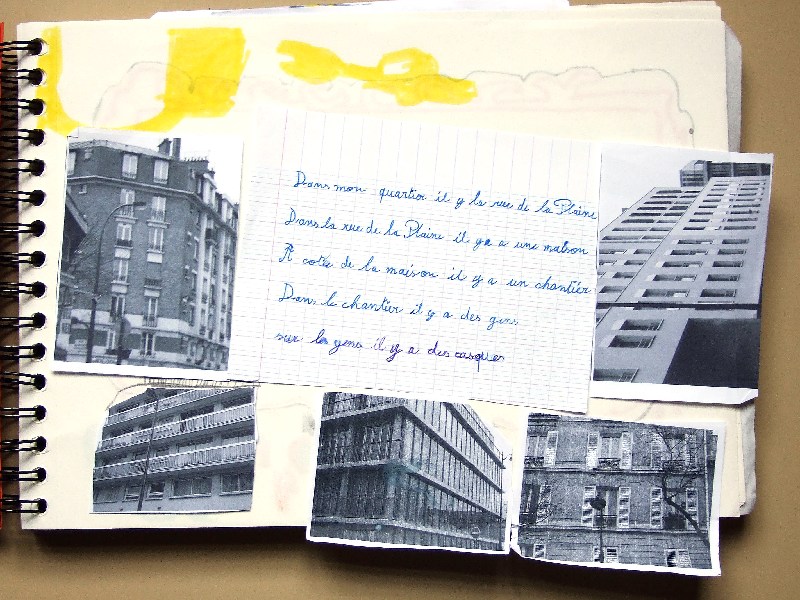 Dans mon quartier il y la rue de la Plaine
Dans la rue de la Plaine il y a a une maison
A coté de la maison il y a un chantier
Dans le chantier il y a des gens
sur les gens il y a des casques